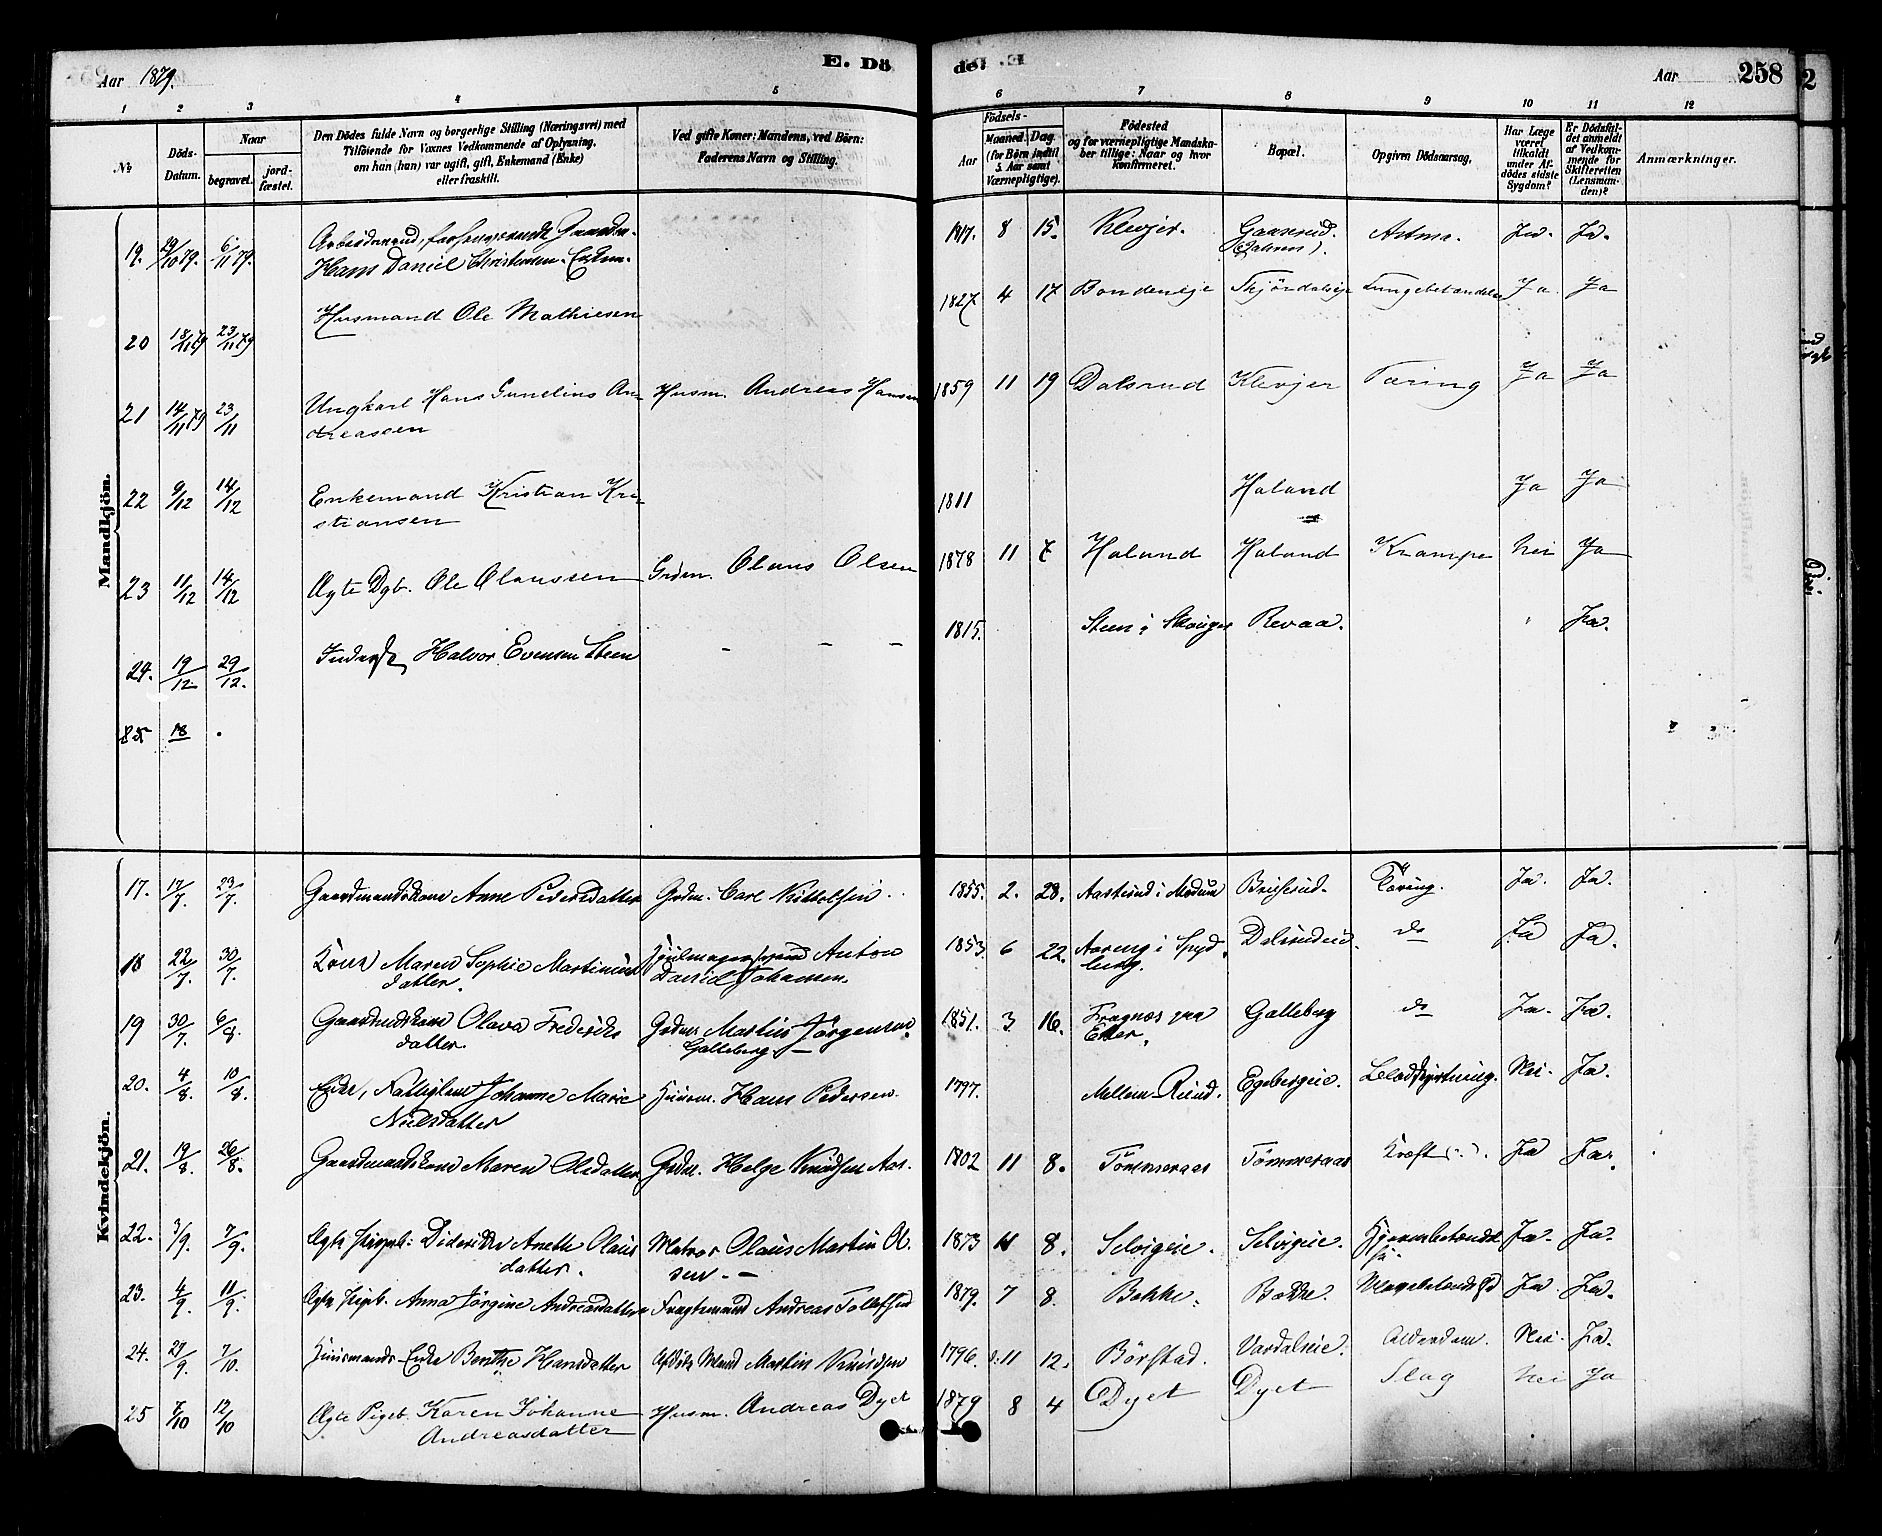 Aar 1879. E. Dö de. Aar 258
1 2 3 4 5 6 7 8 9 10 11 12
№ Döds-Datum. Naar begravet. jordfæstet. Den Dödes fulde Navn og borgerlige Stilling (Næringsvei) med Tilföiende for Voxnes Vedkommende af Oplysning, om han (hun) var ugift, gift, Enkemand (Enke) eller fraskilt. Ved gifte Koner: Mandens, ved Börn: Faderens Navn og Stilling. Födsels- Aar Maaned. Dag. (for Börn indtil 5 Aar samt Værnepligtige). Födested og for værnepligtige Mandskaber tillige: Naar og hvor konfirmeret. Bopæl. Opgiven Dödsaarsag. Har Læge været tilkaldt under Afdödes sidste Sygdom? Er Dödsfaldet anmeldt af Vedkommende for Skifteretten (Lensmanden)? Anmærkninger.
Mandkjön.
19. 29/10 79. 6/11 79. Arbeidsmand, forhenværende Gaardm. Hans Daniel Christensen. Enkem. 1817. 8 15. Klevjer. Gaaserud. Astma. Ja. Ja.
20 18/11 79 23/11 79 Husmand Ole Mathiesen 1827 4 17 Bondeneje Lungebetændelse Ja Ja
21 14/11 79 23/11 Ungkarl Hans Gunelius Andreassen Husm. Andreas Hansen 1859 11 19 Dalsrud Klevjer Tæring Ja Ja
22 9/12 14/12 Enkemand Kristian Kristiansen 1811 Haland Ja Ja
23 11/12 14/12 Ægte Dgb. Ole Olaussen Grdm. Olaus Olsen 1878 11 7 Haland Haland Krampe Nei Ja
24. 19/12 29/12. Inderst, Halvor Evensen Steen - - - 1815. Steen i Skouger Revaa. " Ja.
25 18 .
Kvindekjön.
17. 17/7 23/7. Gaardmandskone Anne Pedersdatter Grdm. Carl Kittolsen 1855. 2. 28. Aasterud i Modum Tæring. Ja. Ja.
18 22/7. 30/7. Kone Maren Sophie Martinusdatter. Anton David Johansen. 1853. 6 22. Aaseng i Spydberg. Dalsrudeie. do Ja Ja.
19 30/7. 6/8. Gaardmandskone Olava Fredriksdatter. Grdm. Martin Jörgensen Galleberg. — 1851. 3 16. Fragnæs paa Eker. Galleberg do Ja. Ja.
20. 4/8. 10/8. Enke, Johanne Marie Nielsdatter Huusm. Hans Pedersen. 1797. Mellem-Ruud. Egebergeie. Nei. Ja.
21. 19/8. 26/8. Gaardmandskone Maren Olsdatter. Grdm. Helge Knudsen Aas. 1802 11 8. Tömmeraas Tömmeraas Kræft Ja Ja.
22. 3/9. 7/9. Ægte Pigeb: Didrikke Anette Olausdatter. Matros Olaus Martin Olsen. — 1873 11 8. Selvigeie. Selvigeie. Hjernebetændelse. Ja. Ja.
23. 4/9. 11/9. Ægte Pigeb. Anna Jörgine Andreasdatter Fragtemand Andreas Tollefsen 1879. 7 8. Bakke. Bakke. Mavebetændelse Ja Ja.
24. 29/9. 7/10. Huusmands Enke Benthe Hansdatter Afdöde Mand Martin Knudsen 1796. 11 12. Börstad. Vardalseie. Alderdom. Nei. Ja.
25 7/10 12/10 Ægte Pigeb. Karen Johanne Andreasdatter Husm. Andreas Dyet 1879 8 4 Dyet Dyet Slag Nei Ja